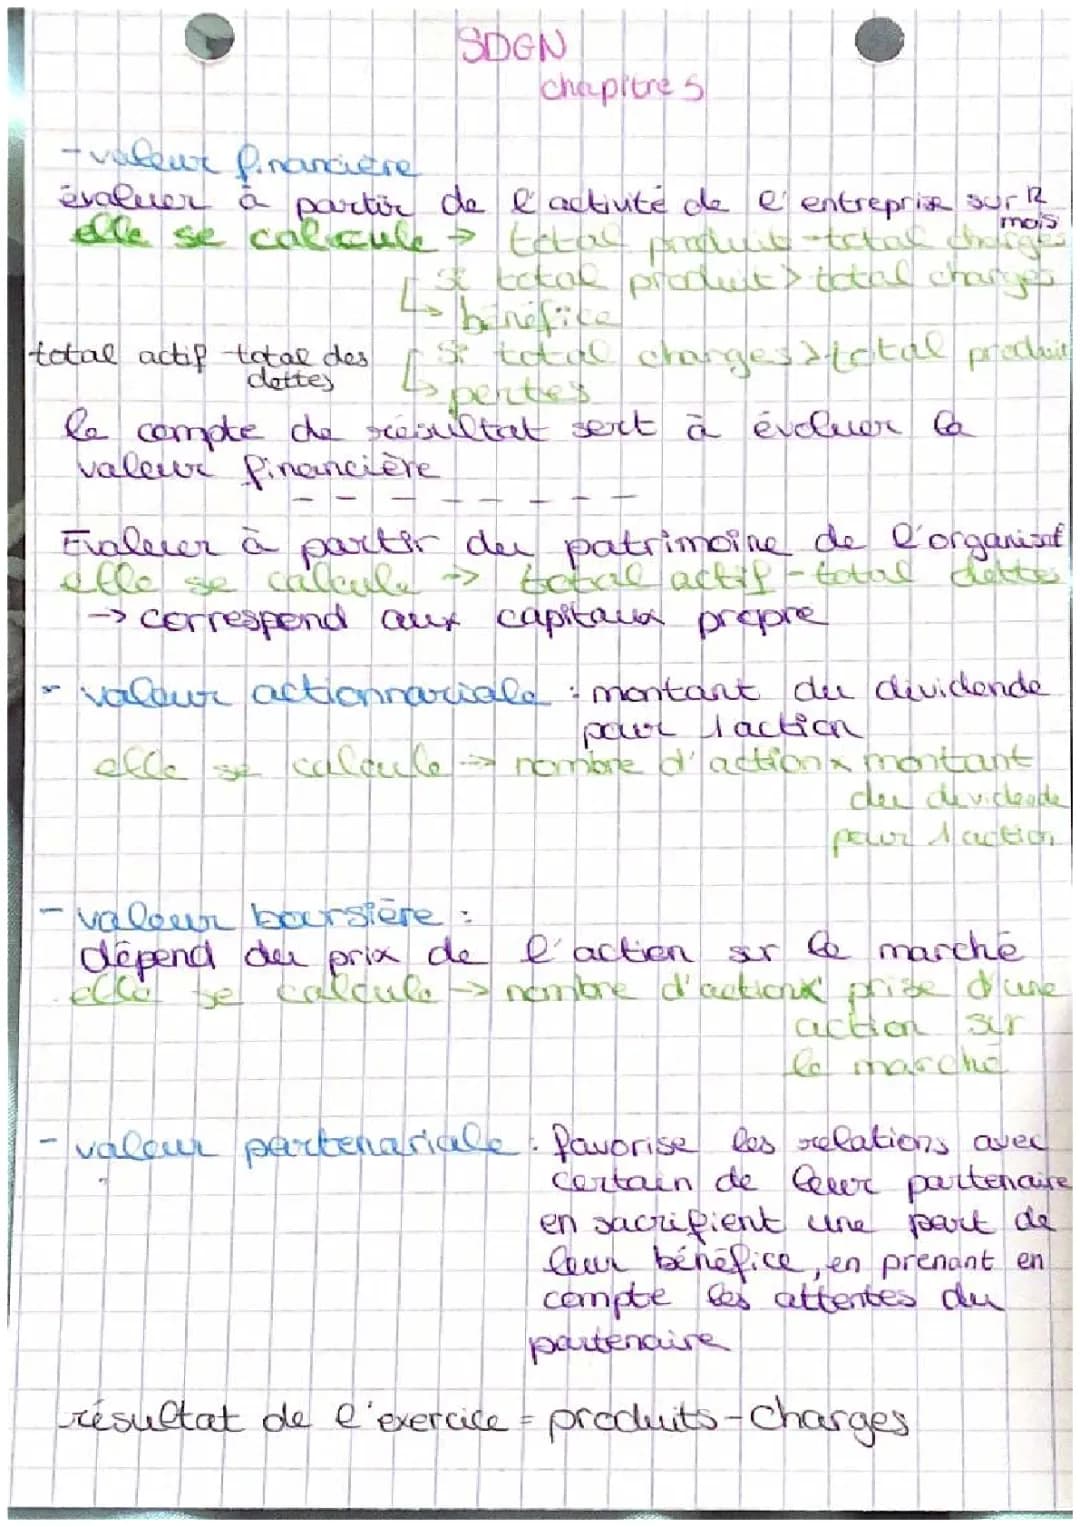 SDGN
chapitre 5
- valeur financière
évaluer à partir de l'activité de l'entreprise sur 12 mois
elle se calcule → total produit - total charges
si total produit > total charges
↳ bénéfice
total actif - total des dettes
si total charges > total produit
↳ pertes
le compte de résultat sert à évoluer la
valeur financière
- - - - - - - -
Evaluer à partir du patrimoine de l'organisat
elle se calcule → total actif - total dettes
→ correspond aux capitaux propre
- valeur actionnariale : montant du dividende
pour 1 action
elle se calcule → nombre d'action x montant
du dividende
pour 1 action
- valeur boursière :
dépend du prix de l'action sur le marché
elle se calcule → nombre d'action x prise d'une
action sur
le marché
- valeur partenariale : favorise les relations avec
certain de leur partenaire
en sacrifient une part de
leur bénéfice, en prenant en
compte les attentes du
partenaire
résultat de l'exercice = produits - charges